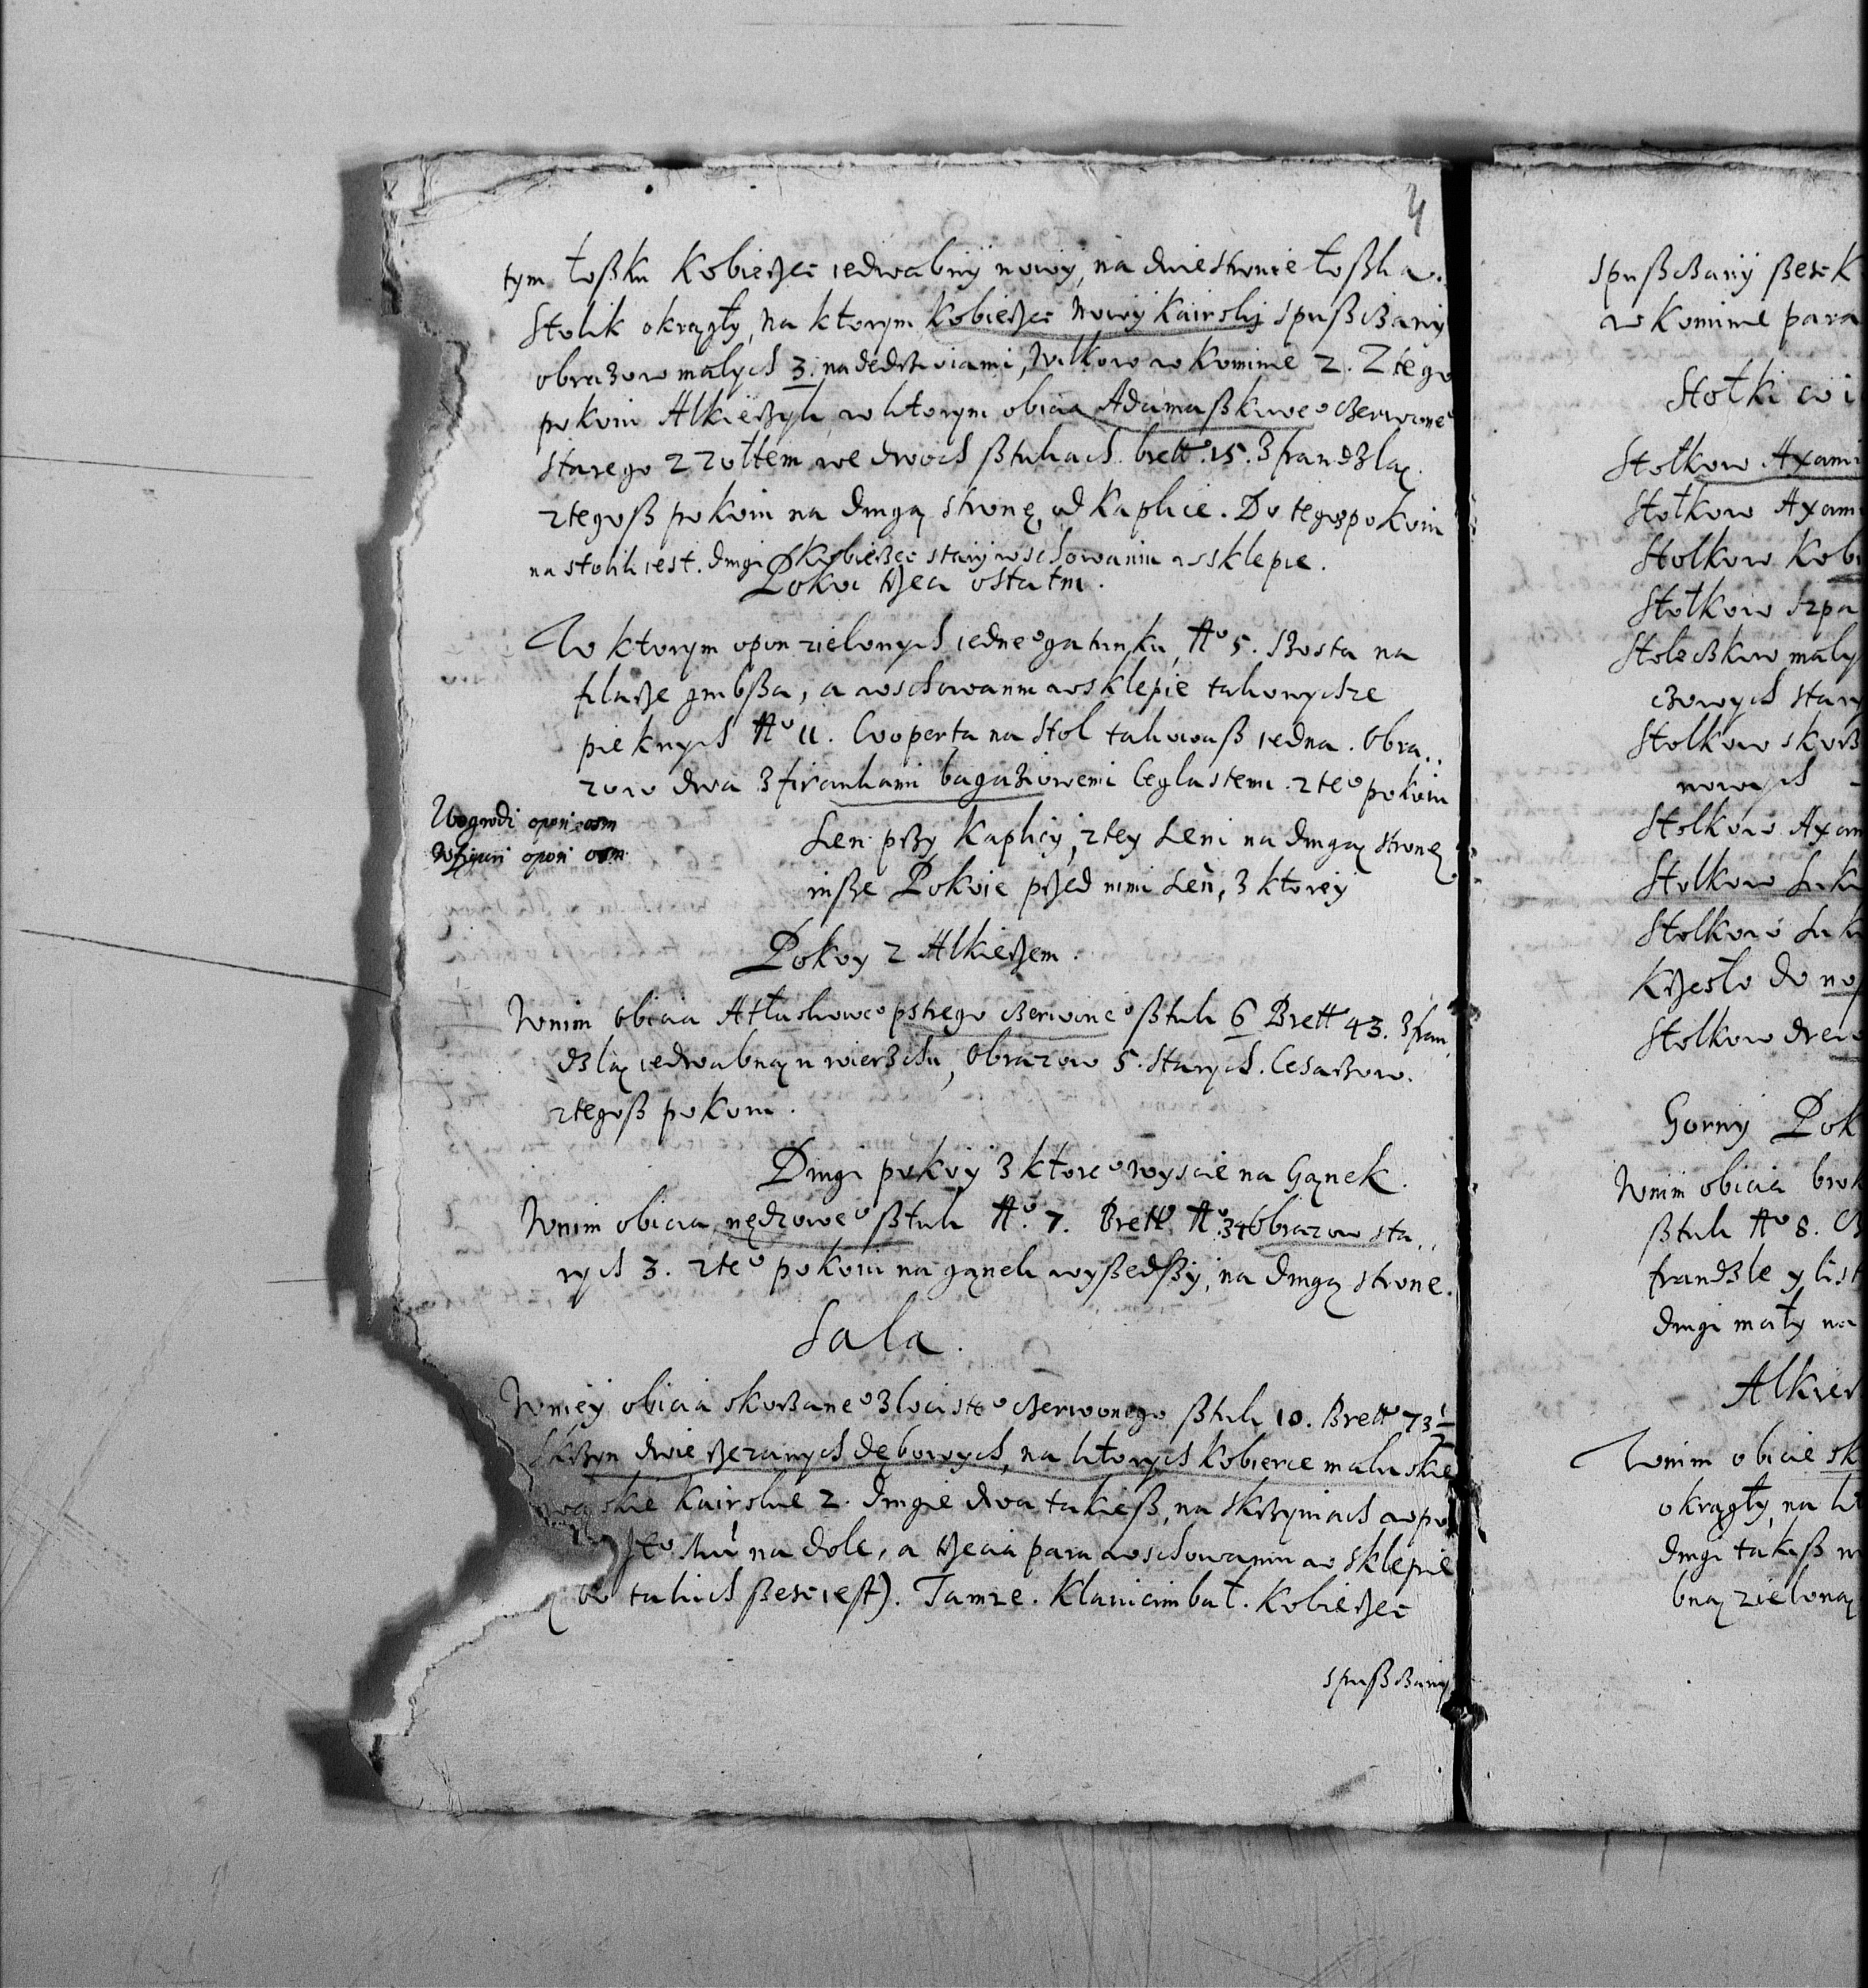 4
tym łoßku Kobierzec iedwabny nowy, na dwie stronie łoßka.
Stolik okrągły, na ktorym Kobierzec nowy Kairsky spußczany
obrazow małych 3. nadedrzwiami, Wilkow w Kominie 2. Z tego
pokoiu Alkierzyk, w ktorym obicia Adamaßkoweo czerwoneo
starego z zołtem, we dwoch ßtukach. brett. 15. z frandzlą.
z tegoß pokoiu na drugą stronę, od Kaplice. Do tegoß pokoiu
na stolik iest. drugi Kobierzec stary w schowaniu w sklepie.
Pokoi trzeci ostatni.
W ktorym opon zielonych iedneo gatunku, No 5. Szosta na
filarze grubßa, a w schowaniu w sklepie takowychze
pieknych No 11. Cooperta na stol takowaß iedna. Obra..
zow dwa z firankami bagaziowemi Ceglastemi. z teo pokoiu
opon osm
opon osm
Sen przy Kaplicy, z tey Seni na drugą stronę
inße Pokoie przed nimi Seń, z ktorey
Pokoy z Alkierzem.
W nim obicia Atłasoweo pstrego czerwoneo ßtuk 6 Brett 43. z fran,
dzlą iedwabną u wierzchu, Obrazow 5. starych. Cesarzow.
z tegoß pokoiu.
Drugi pokoy z ktoreo wyscie na Ganek.
W nim obicia nędzoweo ßtuk No. 7. Brett No. 34 Obrazow sta..
rych 3. z teo pokoiu na ganek wyßedßy, na drugą strone.
Sala.
W niey obicia skorzaneo złocisteo czerwonego ßtuk 10. Brett 73 1/2
Skrzyn dwie rzezanych dębowych, na ktorych Kobierce maluskie
skie Kairskie 2. drugie dwa takieß, na skrzyniach w po
na dole, a trzecia para w schowaniu w sklepie
bo takich ßesc iest). Tamze. Klawicimbał. Kobierzec
spußczany
spußczany ßesc K
w Kominie para
Stołki
Stołkow Axami
Stołkow Axam
Stołkow Kobi
Stołkow szpa
Stoleczkow maly
czowych stary
Stołkow skorz
nowych
Stołkow Axam
Stołkow Suk
Stołkow Suk
Krzesło do no
Stołkow drew
Gorny Pok
W nim obicia brok
ßtuk No 8.
frandzle y list
drugi mały na
Alkier
W nim obicie sk
okrągły, na kt
drugi takiß
bną zieloną